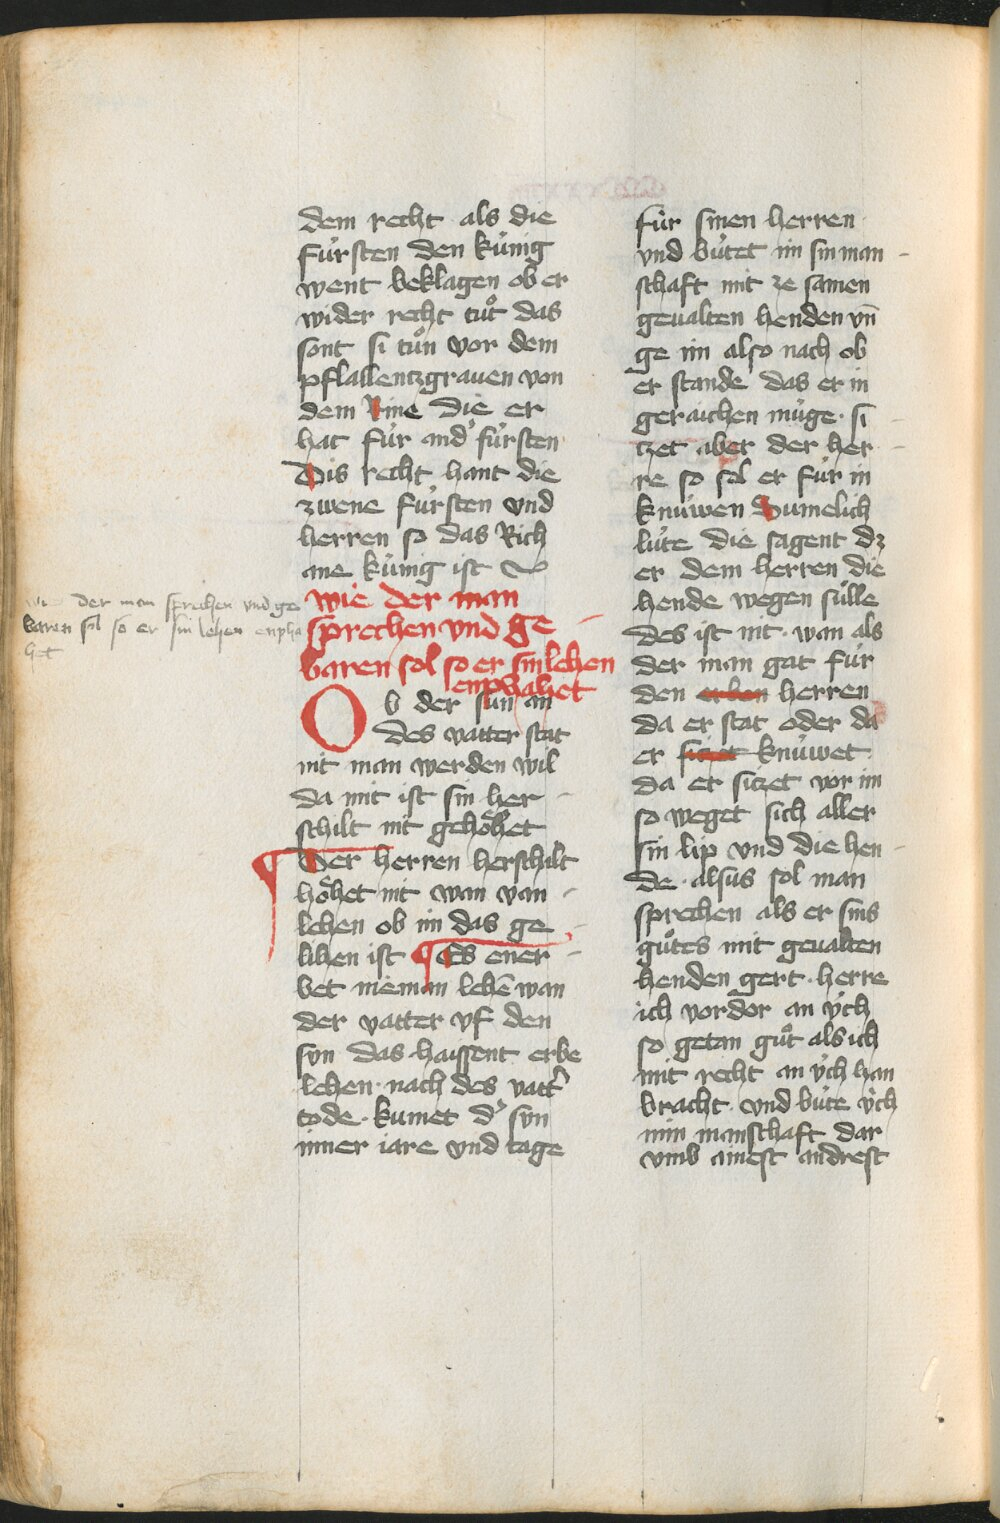 dem recht als die
fu̍rsten den ku̍nig
went beklagen ob er
wider recht tuͦt das
sont si tuͦn vor dem
pflallentzgrauen von
dem Rine die er
hat fu̍r and' fu̍rsten
Dis recht hant die
zwene fu̍rsten vnd
herren so das Rich
ane ku̍nig ist
wie der man
sprechen vnd ge
baren sol so er sin lehen
enphahet
wie der man sprechen vnd ge
baren sol so er sin lehen enpha
het
Ob der sun an
des vatter stat
nit man werden wil
da mit ist sin her
schilt nit gehoͤhet
Der herren herschilt
hoͤhet nit wan van
lehen ob im das ge
lihen ist Es ener
bet nieman lehē wan
der vatter vf den
syn das haissent erbe
lehen · nach des vatt'
tode · kumet d' syn
inner iare vnd tage
fu̍r sinen herren
vnd bu̍tet im sin man
schaft mit ze samen
geualten henden vn̄
ge im also nach ob
er stande das er in
geraichen mu̍ge · si
tzet aber der her
re so sol er fu̍r in
knu̍wen Sumelich
lu̍te die sagent dz
er dem herren die
hende wegen su̍lle
des ist nit · wan als
der man gat fu̍r
den erben herren
da er stat oder da
er sizet knu̍wet
da er sitzet vor im
so weget sich aller
sin lip vnd die hen
de · alsus sol man
sprechen als er sins
guͦtes mit geualten
henden gert · herre
ich vordor an u̍ch
so getan guͦt als ich
mit recht an u̍ch han
bracht · vnd bu̍te u̍ch
min manschaft dar
vmb ainest andrest